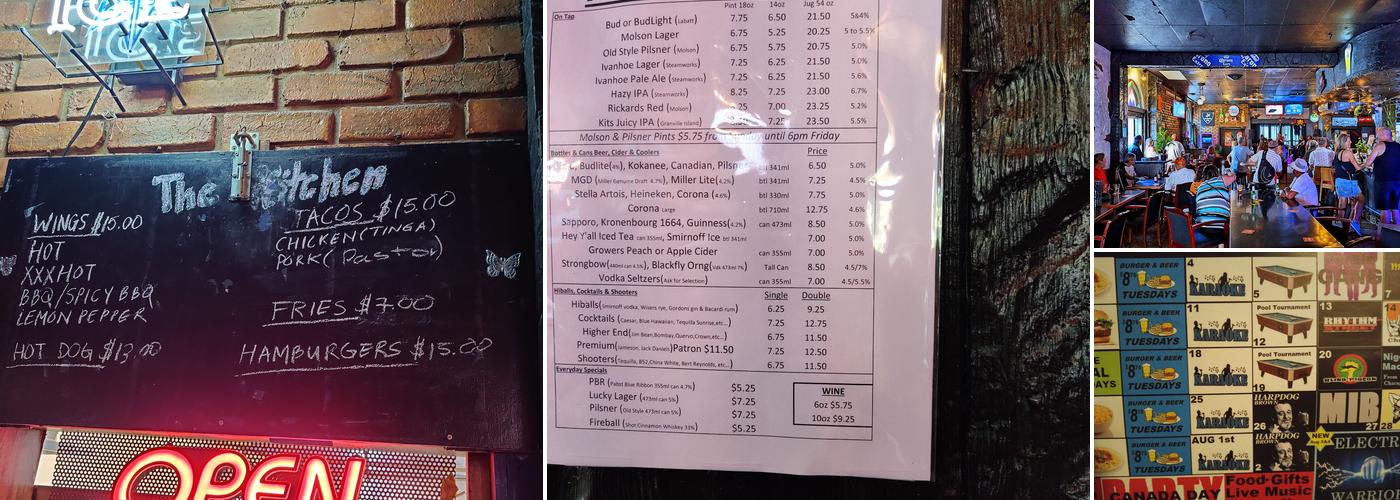 The Kitchen
WINGS $15.00
HOT
XXXHOT
BBQ/SPICY BBQ
LEMON PEPPER
HOT DOG $13.00
TACOS $15.00
CHICKEN (TINGA)
PORK (Pastor)
FRIES $7.00
HAMBURGERS $15.00
OPEN
Pint 18oz 14oz Jug 54 oz
On Tap
Bud or BudLight (Labatt) 7.75 6.50 21.50 5&4%
Molson Lager 6.75 5.25 20.25 5 to 5.5%
Old Style Pilsner (Molson) 6.75 5.75 20.75 5.0%
Ivanhoe Lager (Steamworks) 7.25 6.25 21.50 5.0%
Ivanhoe Pale Ale (Steamworks) 7.25 6.25 21.50 5.6%
Hazy IPA (Steamworks) 8.25 7.25 23.00 6.7%
Rickards Red (Molson) 7.00 23.25 5.2%
Kits Juicy IPA (Granville Island) 7.25 23.50 5.5%
Molson & Pilsner Pints $5.75 from until 6pm Friday
Bottles & Cans Beer, Cider & Coolers Price
Budlite(4%), Kokanee, Canadian, Pilsner btl 341ml 6.50 5.0%
MGD (Miller Genuine Draft 4.7%), Miller Lite(4.2%) btl 341ml 7.25 4.5%
Stella Artois, Heineken, Corona (4.6%) btl 330ml 7.75 5.0%
Corona Large btl 710ml 12.75 4.6%
Sapporo, Kronenbourg 1664, Guinness(4.2%) can 473ml 8.50 5.0%
Hey Y'all Iced Tea can 355ml, Smirnoff Ice btl 341ml 7.00 5.0%
Growers Peach or Apple Cider can 355ml 7.00 5.0%
Strongbow(440ml can 4.5%), Blackfly Orng(Vdk 473ml 7%) Tall Can 8.50 4.5/7%
Vodka Seltzers(Ask for Selection) can 355ml 7.00 4.5/5.5%
Hiballs, Cocktails & Shooters Single Double
Hiballs(Smirnoff vodka, Wisers rye, Gordons gin & Bacardi rum) 6.25 9.25
Cocktails (Caesar, Blue Hawaiian, Tequila Sunrise,etc...) 7.25 12.75
Higher End(Jim Bean,Bombay,Quervo,Crown,etc...) 6.75 11.50
Premium(Jameson, Jack Daniels)Patron $11.50 7.25 12.50
Shooters(Tequilla, B52,China White, Bert Reynolds, etc...) 6.75 11.50
Everyday Specials
PBR (Pabst Blue Ribbon 355ml can 4.7%) $5.25
Lucky Lager (473ml can 5%) $7.25
Pilsner (Old Style 473ml can 5%) $7.25
Fireball (Shot Cinnamon Whiskey 33%) $5.25
WINE
6oz $5.75
10oz $9.25
Corona
BURGER & BEER
TUESDAYS
4
KARAOKE
5
BURGER & BEER
$8
TUESDAYS
11
KARAOKE
Pool Tournament
12
13
RHYTHM
14
BURGER & BEER
$8
TUESDAYS
18
KARAOKE
Pool Tournament
19
20
BLIND PIGEONS
BURGER & BEER
$8
TUESDAYS
25
KARAOKE
HARPDOG
BROWN
26
MIB
27
28
BURGER & BEER
$8
TUESDAYS
AUG 1st
KARAOKE
HARPDOG
BROWN
2
NEW
ELECTR
WARRIO
PARTY
CANADA DAY
Food-Gifts
Live Music